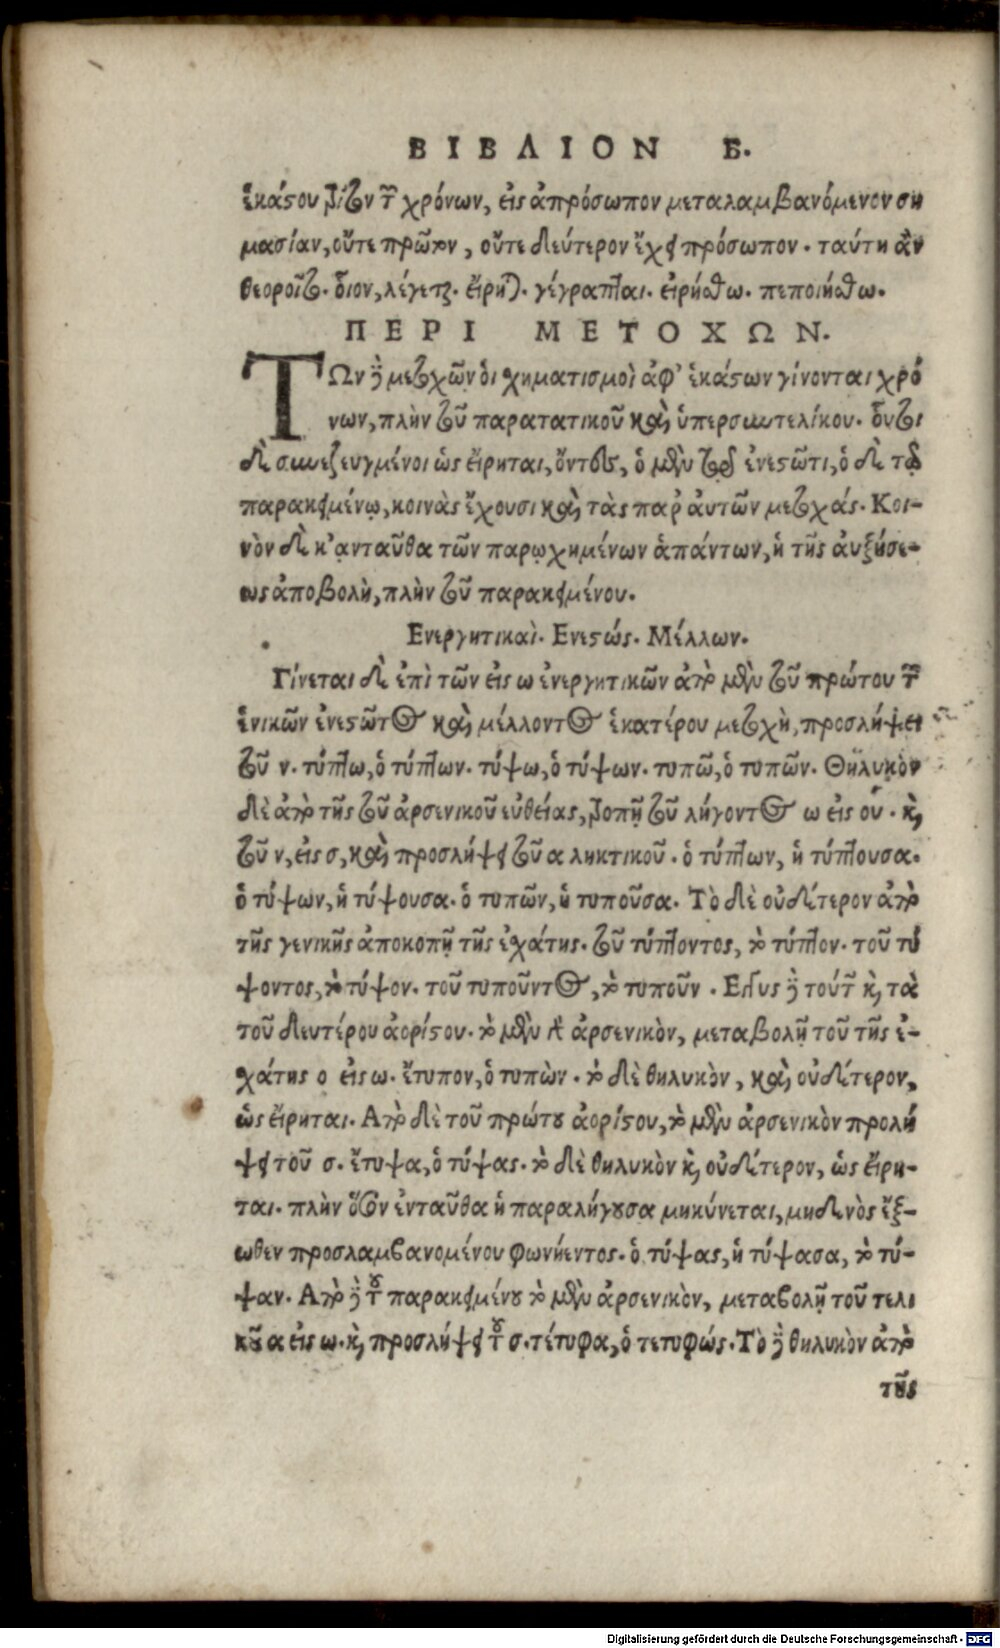 ΒΙΒΛΙΟΝ Β.
ἑκάστου τρίτον τῶν χρόνων, εἰς ἀπρόσωπον μεταλαμβανόμενον ση
μασίαν, οὔτε πρῶτον, οὔτε δεύτερον ἔχει πρόσωπον. ταύτη ἂν
θεοροῖτο. οἷον, λέγεται. εἴρηται. γέγραπται. εἰρήσθω. πεποιήσθω.
ΠΕΡΙ ΜΕΤΟΧΩΝ.
ΤΩν δὲ μετοχῶν ὁι σχηματισμοὶ ἀφ' ἑκάστων γίνονται χρό
νων, πλὴν τοῦ παρατατικοῦ καὶ ὑπερσυντελίκου. οὗτοι
δὲ συνεζευγμένοι ὡς εἴρηται, ὄντες, ὁ μὲν τῷ ἐνεστῶτι, ὁ δὲ τῷ
παρακειμένῳ, κοινὰς ἔχουσι καὶ τὰς παρ' ἀυτῶν μετοχάς. Κοι-
νὸν δὲ κ' ἀνταῦθα τῶν παρῳχημένων ἁπάντων, ἡ τῆς ἀυξήσε-
ως ἀποβολὴ, πλὴν τοῦ παρακειμένου.
Ενεργητικαὶ. Ενεστώς. Μέλλων.
Γίνεται δὲ ἐπὶ τῶν εἰς ω ἐνεργητικῶν ἀπὸ μὲν τοῦ πρώτου τῶν
ἑνικῶν ἐνεστῶτος καὶ μέλλοντος ἑκατέρου μετοχὴ, προσλήψει
τοῦ ν. τύπτω, ὁ τύπτων. τύψω, ὁ τύψων. τυπῶ, ὁ τυπῶν. Θηλυκὸν
δὲ ἀπὸ τῆς τοῦ ἀρσενικοῦ εὐθείας, τροπῇ τοῦ λήγοντος ω εἰς ού. καὶ
τοῦ ν, εἰς σ, καὶ προσλήψει τοῦ α ληκτικοῦ. ὁ τύπτων, ἡ τύπτουσα.
ὁ τύψων, ἡ τύψουσα. ὁ τυπῶν, ἡ τυποῦσα. Τὸ δὲ οὐδέτερον ἀπὸ
τῆς γενικῆς ἀποκοπῇ τῆς ἐσχάτης. τοῦ τύπτοντος, τὸ τύπτον. τοῦ τύ
ψοντος, τὸ τύψον. τοῦ τυποῦντος, τὸ τυποῦν. Εὐθὺς δὲ τούτων καὶ τὰ
τοῦ δευτέρου ἀορίστου. τὸ μὲν γὰρ ἀρσενικὸν, μεταβολῇ τοῦ τῆς ἐ-
σχάτης ο εἰς ω. ἔτυπον, ὁ τυπὼν. τὸ δὲ θηλυκὸν, καὶ οὐδέτερον,
ὡς εἴρηται. Απὸ δὲ τοῦ πρώτου ἀορίστου, τὸ μὲν ἀρσενικὸν προσλή
ψει τοῦ σ. ἔτυψα, ὁ τύψας. τὸ δὲ θηλυκὸν καὶ οὐδέτερον, ὡς εἴρη-
ται. πλὴν ὅσον ἐνταῦθα ἡ παραλήγουσα μηκύνεται, μηδενὸς ἔξ-
ωθεν προσλαμβανομένου φωνήεντος. ὁ τύψας, ἡ τύψασα, τὸ τύ-
ψαν. Απὸ δὲ τοῦ παρακειμένου τὸ μὲν ἀρσενικὸν, μεταβολῇ τοῦ τελι
κοῦ α εἰς ω. καὶ προσλήψει τοῦ σ. τέτυφα, ὁ τετυφώς. Τὸ δὲ θηλυκὸν ἀπὸ
τῆς
Digitalisierung gefördert durch die Deutsche Forschungsgemeinschaft - DFG